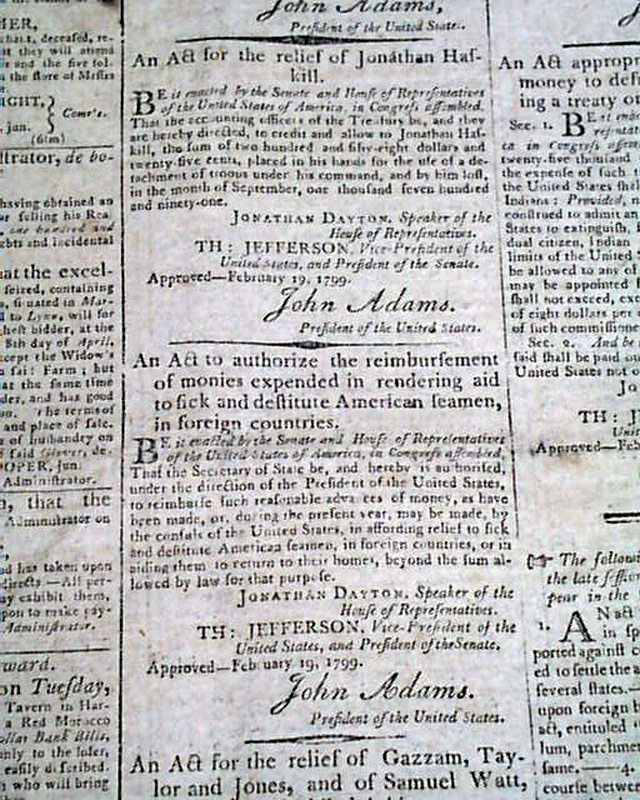 HER,
chant, deceased, re-
at they will attend
the store of Messrs
IGHT,
Com'r's.
jan.
(6tm)
strator, de bo-
having obtained an
or selling his Rea
one hundred and
ebts and incidental
at the excel-
seized, containing
situated in Mar-
to Lynn, will for
hest bidder, at the
8th day of April,
cept the Widow's
said Farm; but
at the same time
der, and has good
The terms of
and place of sale.
of husbandry on
said Glover, de-
OPER, jun.
Administrator.
that the
Administrator on
nd has taken upon
directs—All per-
ay exhibit them,
pon to make pay-
Administrator.
ward.
on Tuesday,
Tavern in Har-
a Red Morocco
ollar Bank Bills,
only to the loser,
easily described.
who will bring
John Adams,
President of the United States.
An Act for the relief of Jonathan Haſ-
kill.
BE it enacted by the Senate and Houſe of Repreſentatives
of the United States of America, in Congreſs aſſembled.
That the accounting officers of the Treaſury be, and they
are hereby directed, to credit and allow to Jonathan Haſ-
kill, the ſum of two hundred and fifty-eight dollars and
twenty-five cents, placed in his hands for the uſe of a de-
tachment of troops under his command, and by him loſt,
in the month of September, one thouſand ſeven hundred
and ninety-one.
JONATHAN DAYTON, Speaker of the
Houſe of Repreſentatives.
TH: JEFFERSON, Vice-Preſident of the
United States, and Preſident of the Senate.
Approved—February 19, 1799.
John Adams.
Preſident of the United States.
An Act to authorize the reimburſement
of monies expended in rendering aid
to ſick and deſtitute American ſeamen,
in foreign countries.
BE it enacted by the Senate and Houſe of Repreſentatives
of the United States of America, in Congreſs aſſembled,
That the Secretary of State be, and hereby is authoriſed,
under the direction of the Preſident of the United States,
to reimburſe ſuch reaſonable advances of money, as have
been made, or, during the preſent year, may be made, by
the conſuls of the United States, in affording relief to ſick
and deſtitute American ſeamen, in foreign countries, or in
aiding them to return to their homes, beyond the ſum al-
lowed by law for that purpoſe.
JONATHAN DAYTON, Speaker of the
Houſe of Repreſentatives.
TH: JEFFERSON, Vice-Preſident of the
United States, and Preſident of the Senate.
Approved—February 19, 1799.
John Adams.
Preſident of the United States.
An Act for the relief of Gazzam, Tay-
lor and Jones, and of Samuel Watt,
An Act appropr
money to def
ing a treaty o
Sec. 1. BE it ena
repreſenta
ca in Congreſs aſſem
twenty-five thouſand
the expenſe of ſuch t
the United States ſhal
Indians: Provided, n
conſtrued to admit an
States to extinguiſh, f
dual citizen, Indian
limits of the United
be allowed to any of
may be appointed
ſhall not exceed, ex
of eight dollars per
of ſuch commiſſione
Sec. 2. And be
ſaid ſhall be paid o
United States not o
Jo
TH: J
Unit
Approved—Fe
The followi
the late ſeſſi
pear in the
1. AN act
in ſp
ported againſt
ed to ſettle the a
ſeveral ſtates.—
upon foreign
act, entituled
lum, parchme
ſame.—4.
courſe betwee